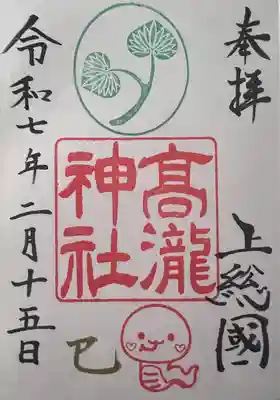 奉拝
上総國
高瀧
神社
令和七年二月十五日
巳